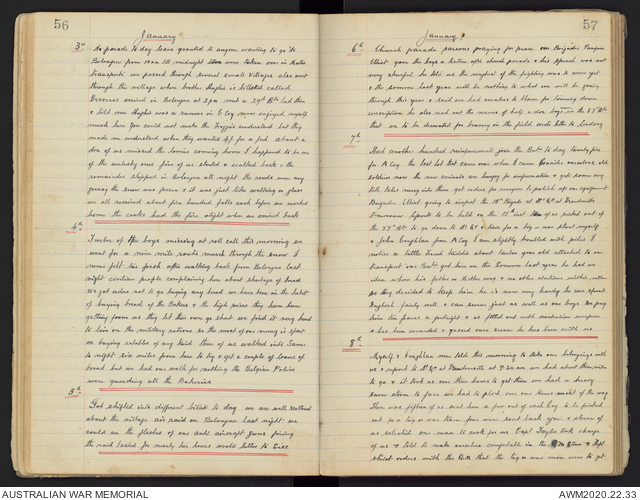 56
January
3rd No parade to day leave granted to anyone wanting to go to
Bologne from 10 am till midnight we were taken over in Motor
transports we passed through several small villages also went
through the village when brother Hughie is billeted called
arrived in Bologne at 2 pm met a 29th Btn lad there
& told me Hughie was a runner in C Coy never enjoyed myself
much here you could not make the understand but they
made me understand when they wanted 4f for a feed about a
doz of us missed the lorries coming home I happened to be one
of the unlucky ones five of us started & walked back & the
remainder stopped in Bologne all night the roads were very
greasy the snow was frozen & it was just like walking on glass
we all received about five hundred falls each before we reached
home the cooks had the fire alight when we arrived back
4th Twelve of the boys missing at roll call this morning we
went for a nine mile route march through the snow I
never felt too fresh after walking back from Bologne last
night civilian people complaining here about shortage of bread
we got orders not to go buying any bread we have been in the habit
of buying bread of the Bakers & the high prices they have been
getting from us they let their own go short we find it very hard
to live on the military rations so the most of our money is spent
on buying eatables of any kind three of us walked into Samer
to night six miles from here to try & get a couple of loaves of
bread but we had our walk for nothing the Belgian Police
were guarding all the Bakeries
5th Got shifted into different billets to day we are well scattered
about the village air raid on Boulogne last night we
could see the flashes of our anti aircraft guns firing
the raid lasted for nearly two hours would letter to Suss
57
January
6th Church parade parsons praying for peace our Brigadier Pompey
Elliot gave the boys a lecture after church parade & his speech was not
very cheerful he told us the roughest of the fighting was to come yet
& the Somme last year will be nothing to what we will be going
through this year & said we had ourselves to blame for turning down
conscription he also read out the names of half a doz boys in the 57th Btn
that are to be decorated for bravery in the field sent letter to Lindsey
7th Had another hundred reinforcements join the Batn to day twenty five
for A Coy the last lot that came over when I came consider ourselves old
soldiers now the new arrivals are hungry for information & get some very
tall tales rung into them got orders for everyone to polish up our equipment
Brigadier Elliot going to inspect the 15th Brigade at Hd Qs at
Divisional Sports to be held on the 15th inst ten of us picked out of
the 57th Btn to go down to Hd Qs & train for a tug o war stunt myself
& John Coughlan from A Coy I am slightly troubled with piles I
notice a little French kiddie about twelve years old attached to our
transport our Batn got him on the Somme last year he had no
idea where his father or mother was & no other civilians within miles
so they decided to keep him he is now very handy he can speak
English fairly well & can swear just as well as our boys they pay
him ten francs a fortnight & is fitted out with Australian uniform
& has been wounded & gassed once since he has been with us
8th Myself & Coughlan were told this morning to take our belongings with
us & report to Hd Qs at at 9-30 am we had about three miles
to go & it took us over three hours to get there we had a heavy
snow storm to face we had to plod over our knees most of the way
There was fifteen of us sent here a few out of each Coy & to be picked
out for a tug o war team four were sent back again & eleven of
us selected one man to cook for us Capt Taylor took charge
of us & told to make ourselves comfortable in the &
strict orders with the QM that the tug o war men were to get
AUSTRALIAN WAR MEMORIAL
AWM2020.22.33